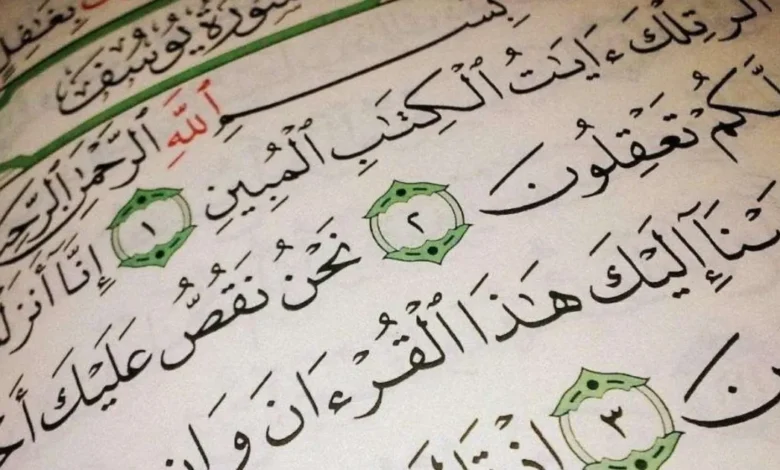 بِغَٰفِلٍ
سُورَةُ يُوسُفَ
بِسْمِ ٱللَّهِ ٱلرَّحْمَٰنِ ٱلرَّحِيمِ
الٓر تِلْكَ ءَايَٰتُ ٱلْكِتَٰبِ ٱلْمُبِينِ ١ إِنَّآ أَنزَلْ
لَّكُمْ تَعْقِلُونَ ٢ نَحْنُ نَقُصُّ عَلَيْكَ أَحْ
يْنَآ إِلَيْكَ هَٰذَا ٱلْقُرْءَانَ وَإِن
ينَ ٣ إِذْ قَالَ